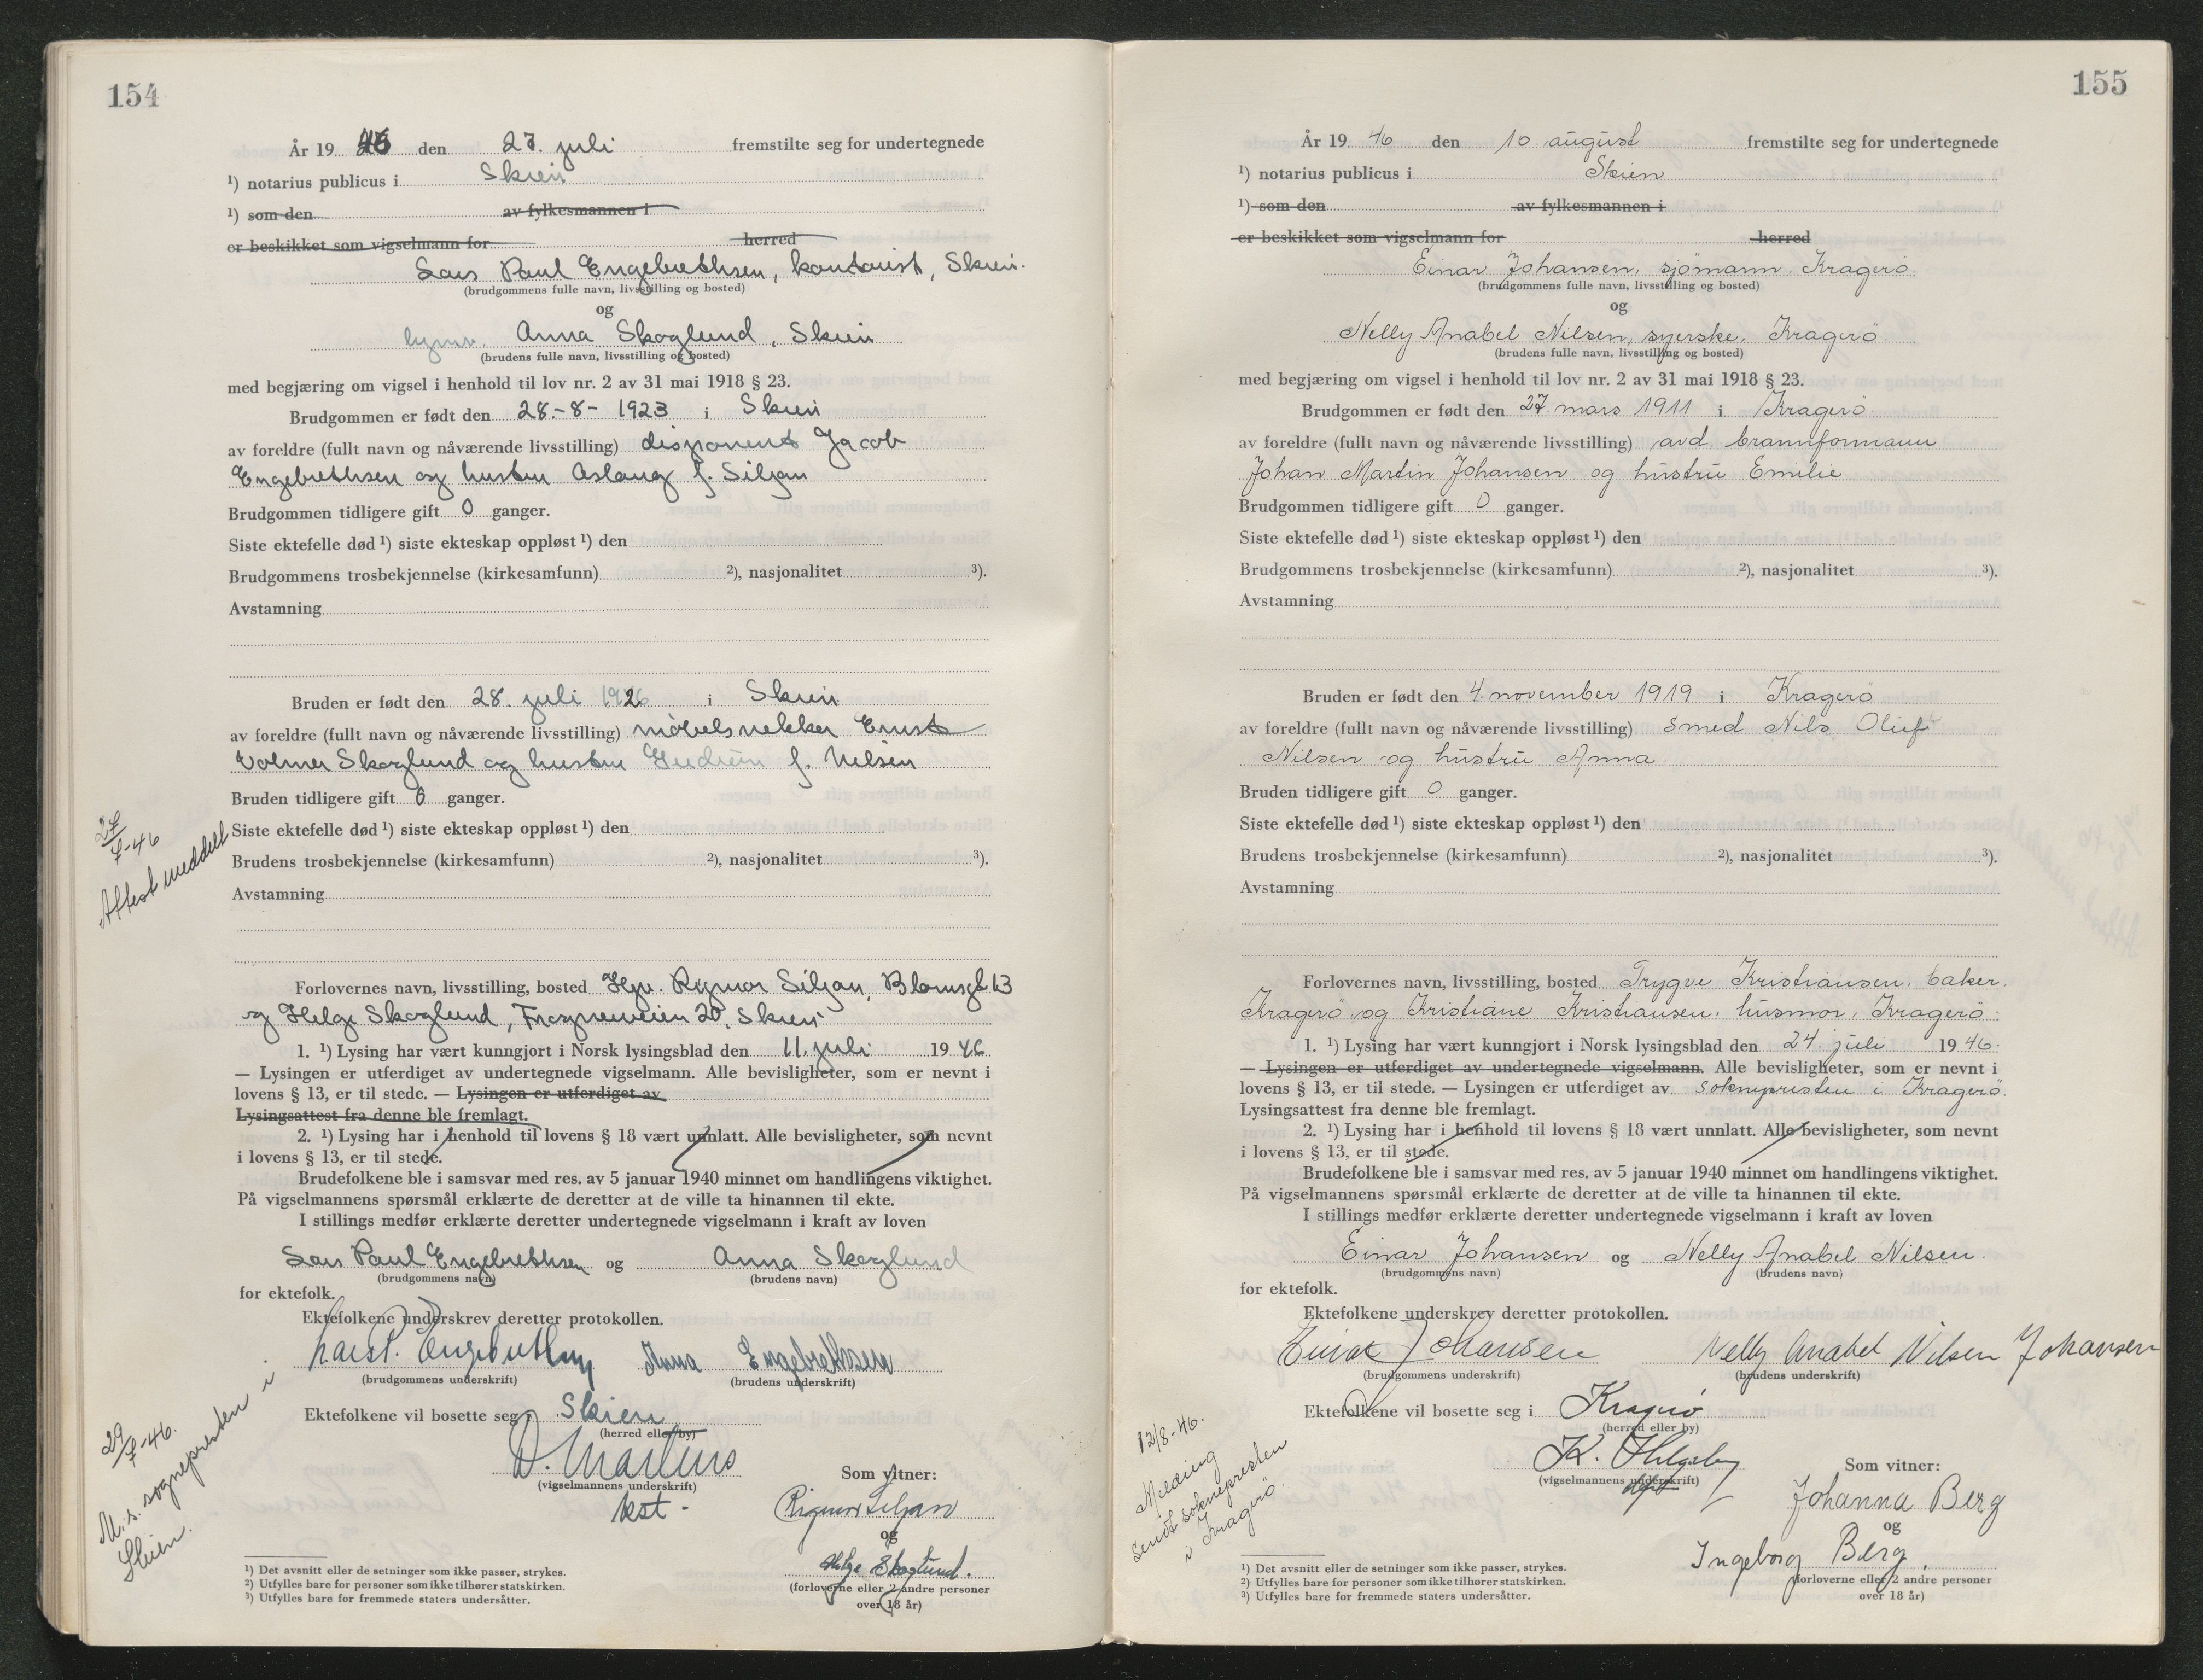 154
År 19 46 den 27. juli fremstilte seg for undertegnede
¹) notarius publicus i Skien
¹) som den av fylkesmannen i
er beskikket som vigselmann for herred
Lars Paul Engebrethsen, kontorist, Skien.
(brudgommens fulle navn, livsstilling og bosted)
og
Anna Skoglund, Skien
(brudens fulle navn, livsstilling og bosted)
med begjæring om vigsel i henhold til lov nr. 2 av 31 mai 1918 § 23.
Brudgommen er født den 28.-8- 1923 i Skien
av foreldre (fullt navn og nåværende livsstilling) disponent Jacob
Engebrethsen og hustru Aslaug f. Siljan
Brudgommen tidligere gift 0 ganger.
Siste ektefelle død ¹) siste ekteskap oppløst ¹) den
Brudgommens trosbekjennelse (kirkesamfunn) ²), nasjonalitet ³).
Avstamning
Bruden er født den 28. juli 1926 i Skien
av foreldre (fullt navn og nåværende livsstilling) møbelsnekker Ernst
Volmer Skoglund og hustru Gudrun f. Nilsen
Bruden tidligere gift 0 ganger.
Siste ektefelle død ¹) siste ekteskap oppløst ¹) den
Brudens trosbekjennelse (kirkesamfunn) ²), nasjonalitet ³).
Avstamning
27/7-46
Attest meddelt
Forlovernes navn, livsstilling, bosted Hgv. Rigmor Siljan, Blomsgt. 13
og Helge Skoglund, Frogneveien 20, Skien
1. ¹) Lysing har vært kunngjort i Norsk lysingsblad den 11. juli 19 46
— Lysingen er utferdiget av undertegnede vigselmann. Alle bevisligheter, som er nevnt i
lovens § 13, er til stede. — Lysingen er utferdiget av
Lysingsattest fra denne ble fremlagt.
2. ¹) Lysing har i henhold til lovens § 18 vært unnlatt. Alle bevisligheter, som nevnt
i lovens § 13, er til stede.
Brudefolkene ble i samsvar med res. av 5 januar 1940 minnet om handlingens viktighet.
På vigselmannens spørsmål erklærte de deretter at de ville ta hinannen til ekte.
I stillings medfør erklærte deretter undertegnede vigselmann i kraft av loven
Lars Paul Engebrethsen og Anna Skoglund
(brudgommens navn) (brudens navn)
for ektefolk.
Ektefolkene underskrev deretter protokollen.
Lars P. Engebrethsen Anna Engebrethsen
(brudgommens underskrift) (brudens underskrift)
Ektefolkene vil bosette seg i Skien
(herred eller by)
(vigselmannens underskrift)
kst.
Som vitner:
Rigmor Siljan
og
Helge Skoglund.
(forloverne eller 2 andre personer
over 18 år)
29/7-46.
M. s. sognepresten i
Skien.
¹) Det avsnitt eller de setninger som ikke passer, strykes.
²) Utfylles bare for personer som ikke tilhører statskirken.
³) Utfylles bare for fremmede staters undersåtter.
155
År 19 46 den 10 august fremstilte seg for undertegnede
¹) notarius publicus i Skien
¹) som den av fylkesmannen i
er beskikket som vigselmann for herred
Einar Johansen, sjömann, Kragerö
(brudgommens fulle navn, livsstilling og bosted)
og
Nelly Anabel Nilsen, syerske, Kragerö
(brudens fulle navn, livsstilling og bosted)
med begjæring om vigsel i henhold til lov nr. 2 av 31 mai 1918 § 23.
Brudgommen er født den 27. mars 1911 i Kragerö
av foreldre (fullt navn og nåværende livsstilling) avd. brannformann
Johan Martin Johansen og hustru Emilie
Brudgommen tidligere gift 0 ganger.
Siste ektefelle død ¹) siste ekteskap oppløst ¹) den
Brudgommens trosbekjennelse (kirkesamfunn) ²), nasjonalitet ³).
Avstamning
Bruden er født den 4. november 1919 i Kragerö
av foreldre (fullt navn og nåværende livsstilling) smed Nils Oluf
Nilsen og hustru Anna
Bruden tidligere gift 0 ganger.
Siste ektefelle død ¹) siste ekteskap oppløst ¹) den
Brudens trosbekjennelse (kirkesamfunn) ²), nasjonalitet ³).
Avstamning
Forlovernes navn, livsstilling, bosted Trygve Kristiansen, baker,
Kragerö og Kristiane Kristiansen, husmor, Kragerö.
1. ¹) Lysing har vært kunngjort i Norsk lysingsblad den 24. juli 19 46.
— Lysingen er utferdiget av undertegnede vigselmann. Alle bevisligheter, som er nevnt i
lovens § 13, er til stede. — Lysingen er utferdiget av soknepresten i Kragerö.
Lysingsattest fra denne ble fremlagt.
2. ¹) Lysing har i henhold til lovens § 18 vært unnlatt. Alle bevisligheter, som nevnt
i lovens § 13, er til stede.
Brudefolkene ble i samsvar med res. av 5 januar 1940 minnet om handlingens viktighet.
På vigselmannens spørsmål erklærte de deretter at de ville ta hinannen til ekte.
I stillings medfør erklærte deretter undertegnede vigselmann i kraft av loven
Einar Johansen og Nelly Anabel Nilsen.
(brudgommens navn) (brudens navn)
for ektefolk.
Ektefolkene underskrev deretter protokollen.
Einar Johansen Nelly Anabel Nilsen Johansen
(brudgommens underskrift) (brudens underskrift)
Ektefolkene vil bosette seg i Kragerø
(herred eller by)
K. Helgeby
(vigselmannens underskrift)
Som vitner:
Johanna Berg
og
Ingeborg Berg.
(forloverne eller 2 andre personer
over 18 år)
12/8-46.
Melding
sendt soknepresten
i Kragerö.
¹) Det avsnitt eller de setninger som ikke passer, strykes.
²) Utfylles bare for personer som ikke tilhører statskirken.
³) Utfylles bare for fremmede staters undersåtter.